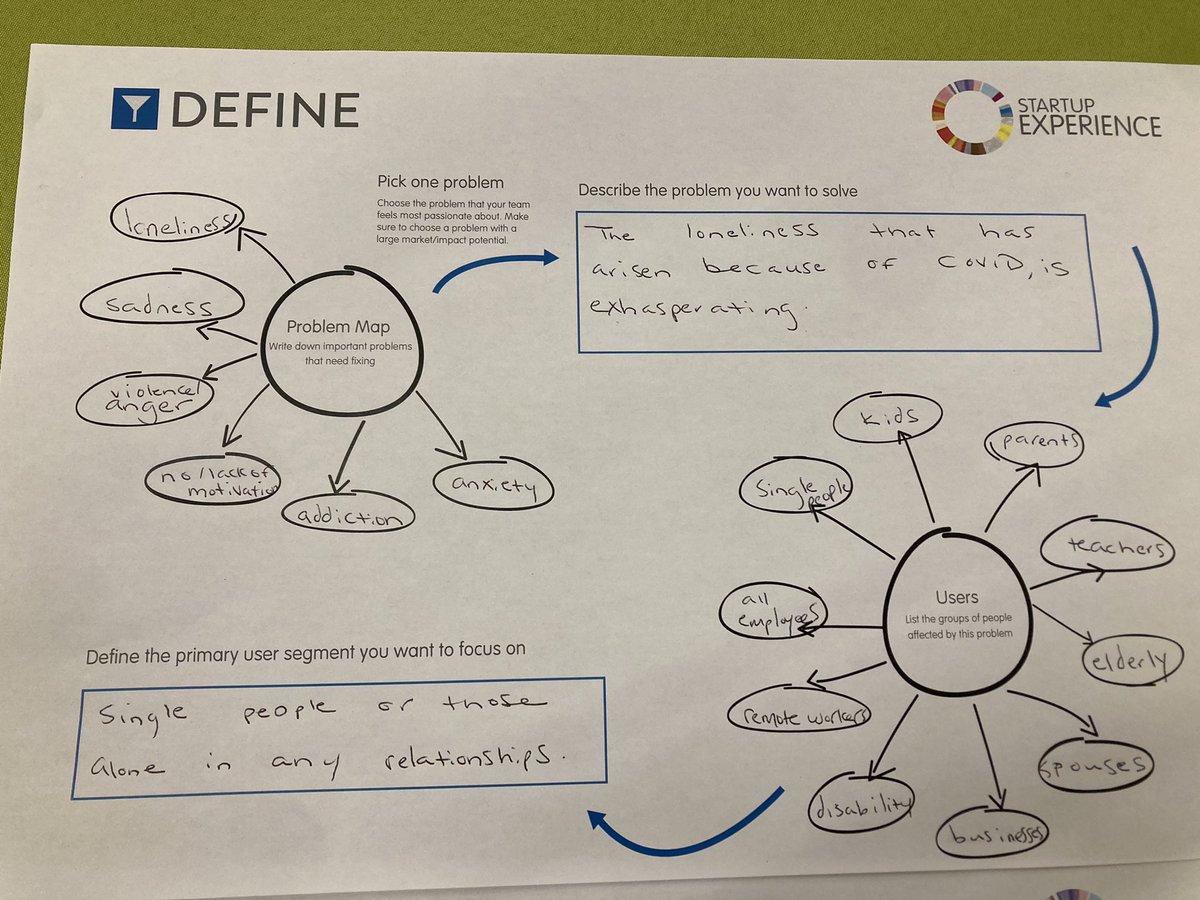 DEFINE
STARTUP
EXPERIENCE
Pick one problem
Choose the problem that your team
feels most passionate about. Make
sure to choose a problem with a
large market/impact potential.
Describe the problem you want to solve
The loneliness that has
arisen because of COVID, is
exhasperating.
loneliness
sadness
violence/
anger
no/lack of
motivation
addiction
anxiety
Problem Map
Write down important problems
that need fixing
kids
parents
single
people
teachers
all
employees
elderly
remote workers
spouses
disability
businesses
Users
List the groups of people
affected by this problem
Define the primary user segment you want to focus on
Single people or those
alone in any relationships.